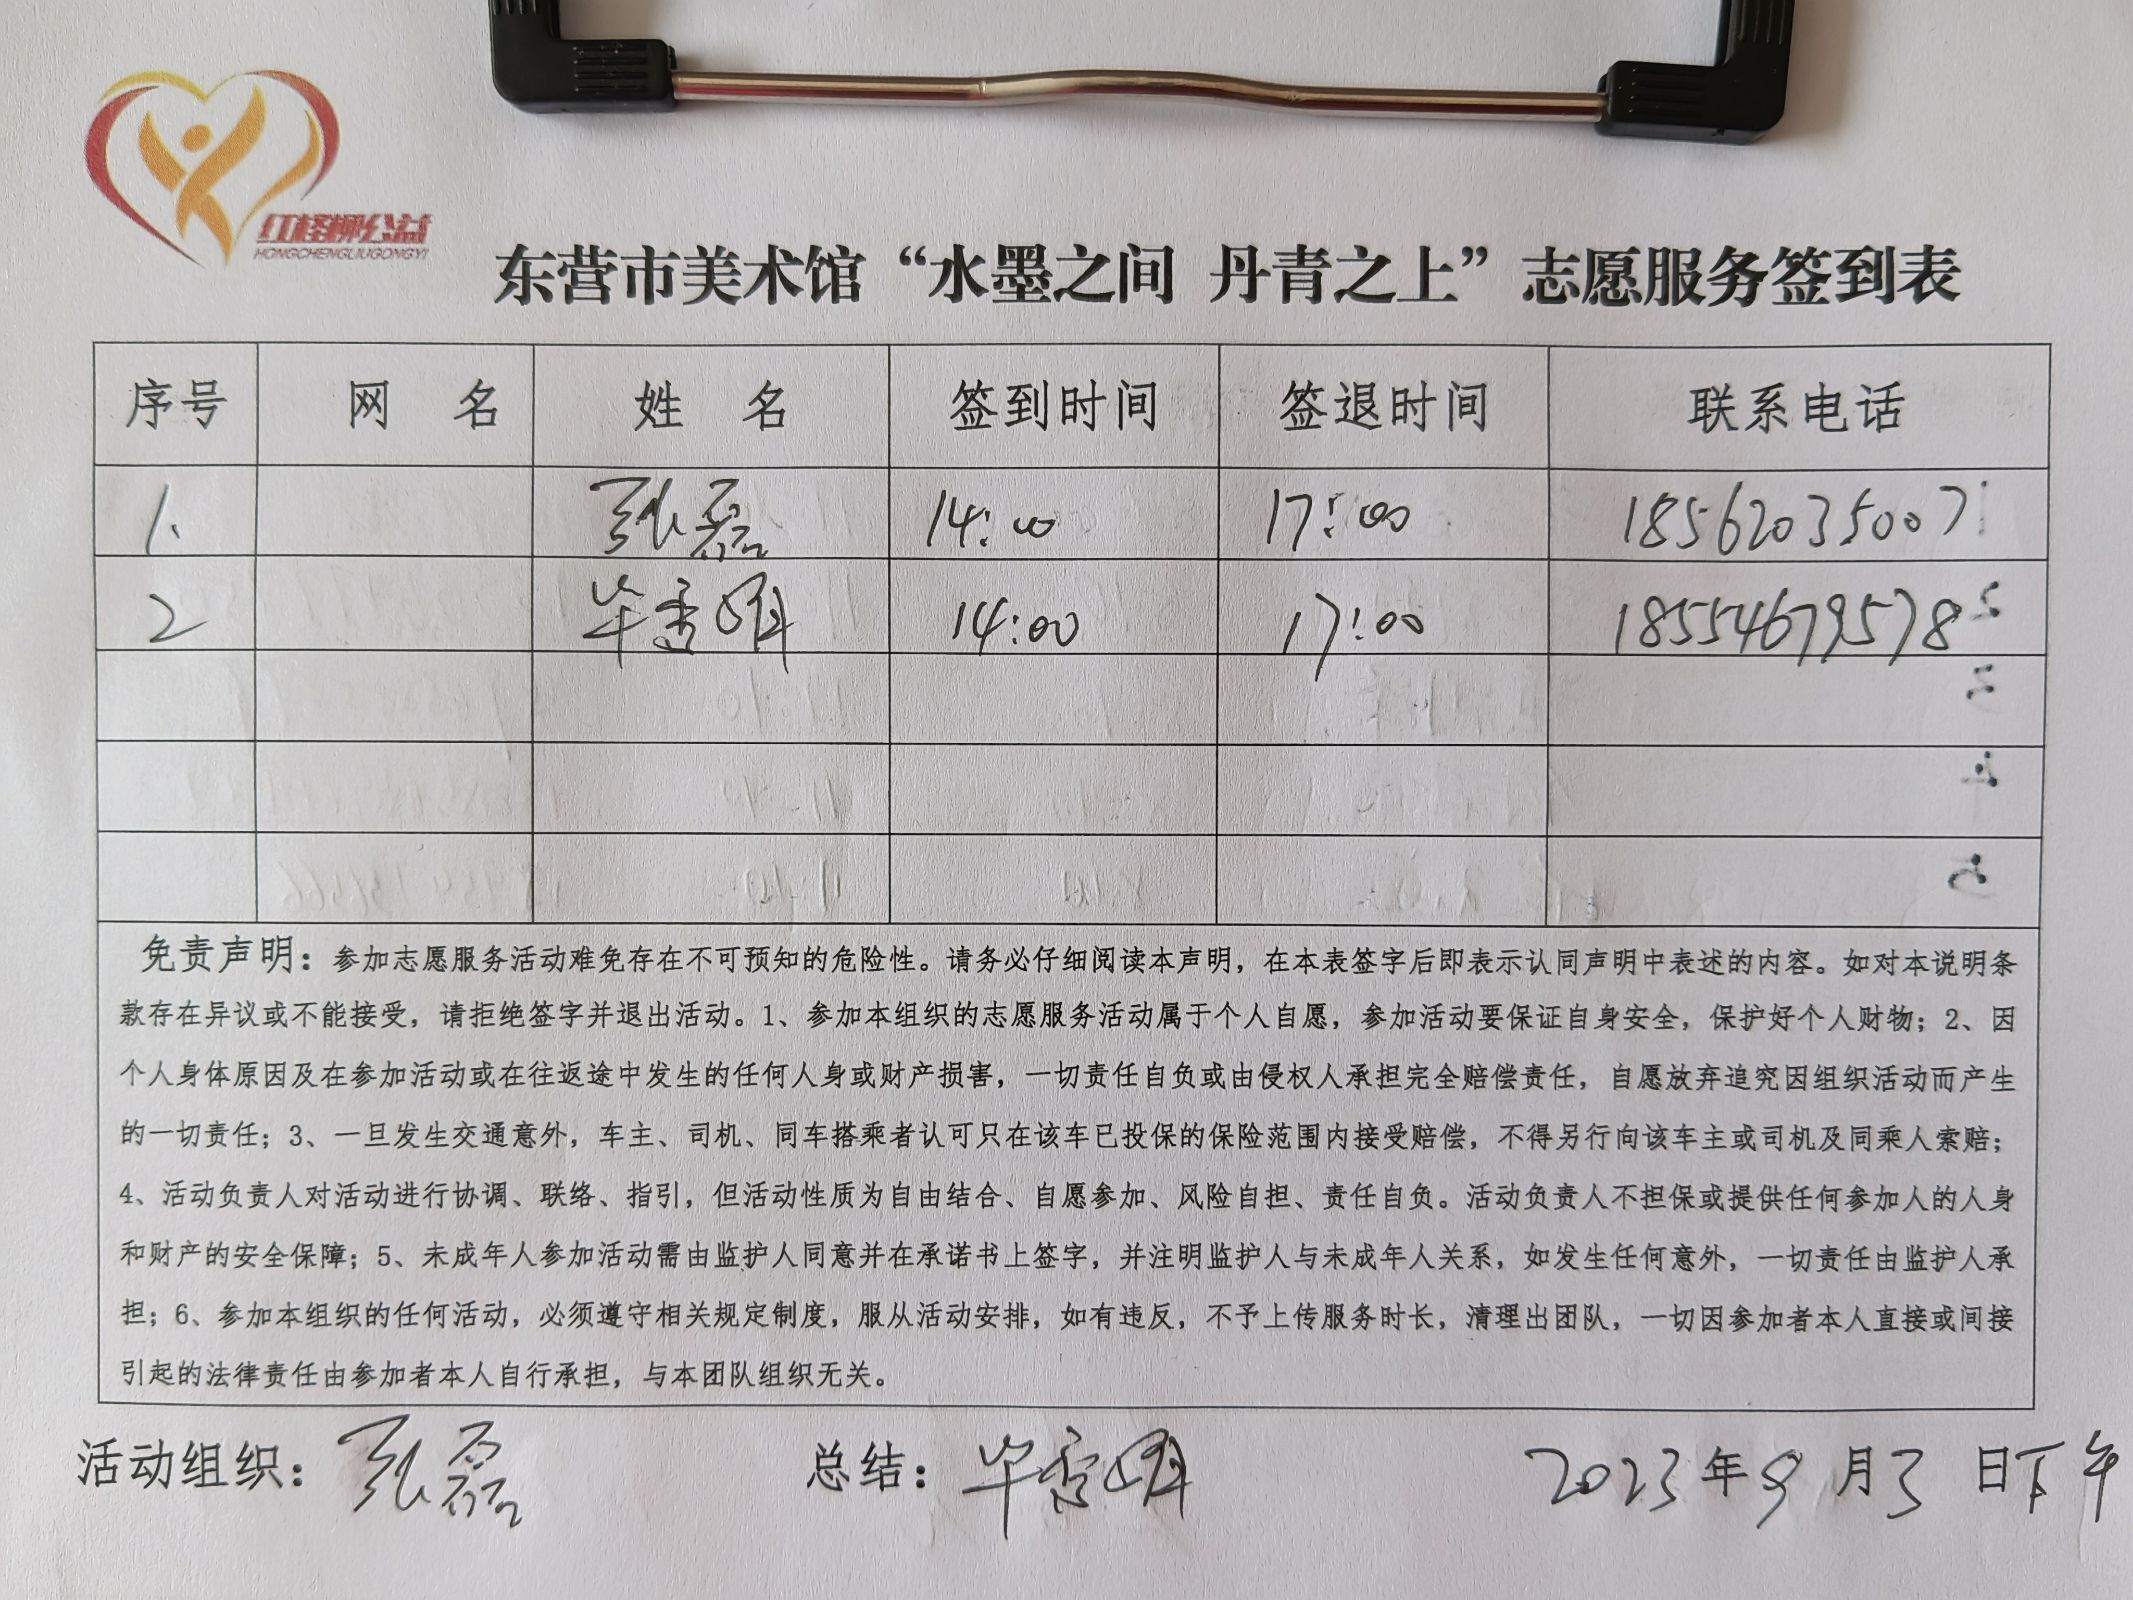 红柽柳公益
HONGCHENGLIUGONGYI
东营市美术馆“水墨之间 丹青之上”志愿服务签到表
序号 网 名 姓 名 签到时间 签退时间 联系电话
1、 张磊 14:00 17:00 18562035007
2 毕秀明 14:00 17:00 18554679578
免责声明：参加志愿服务活动难免存在不可预知的危险性。请务必仔细阅读本声明，在本表签字后即表示认同声明中表述的内容。如对本说明条
款存在异议或不能接受，请拒绝签字并退出活动。1、参加本组织的志愿服务活动属于个人自愿，参加活动要保证自身安全，保护好个人财物；2、因
个人身体原因及在参加活动或在往返途中发生的任何人身或财产损害，一切责任自负或由侵权人承担完全赔偿责任，自愿放弃追究因组织活动而产生
的一切责任；3、一旦发生交通意外，车主、司机、同车搭乘者认可只在该车已投保的保险范围内接受赔偿，不得另行向该车主或司机及同乘人索赔；
4、活动负责人对活动进行协调、联络、指引，但活动性质为自由结合、自愿参加、风险自担、责任自负。活动负责人不担保或提供任何参加人的人身
和财产的安全保障；5、未成年人参加活动需由监护人同意并在承诺书上签字，并注明监护人与未成年人关系，如发生任何意外，一切责任由监护人承
担；6、参加本组织的任何活动，必须遵守相关规定制度，服从活动安排，如有违反，不予上传服务时长，清理出团队，一切因参加者本人直接或间接
引起的法律责任由参加者本人自行承担，与本团队组织无关。
活动组织：张磊 总结：毕秀明 2023年9月3日下午